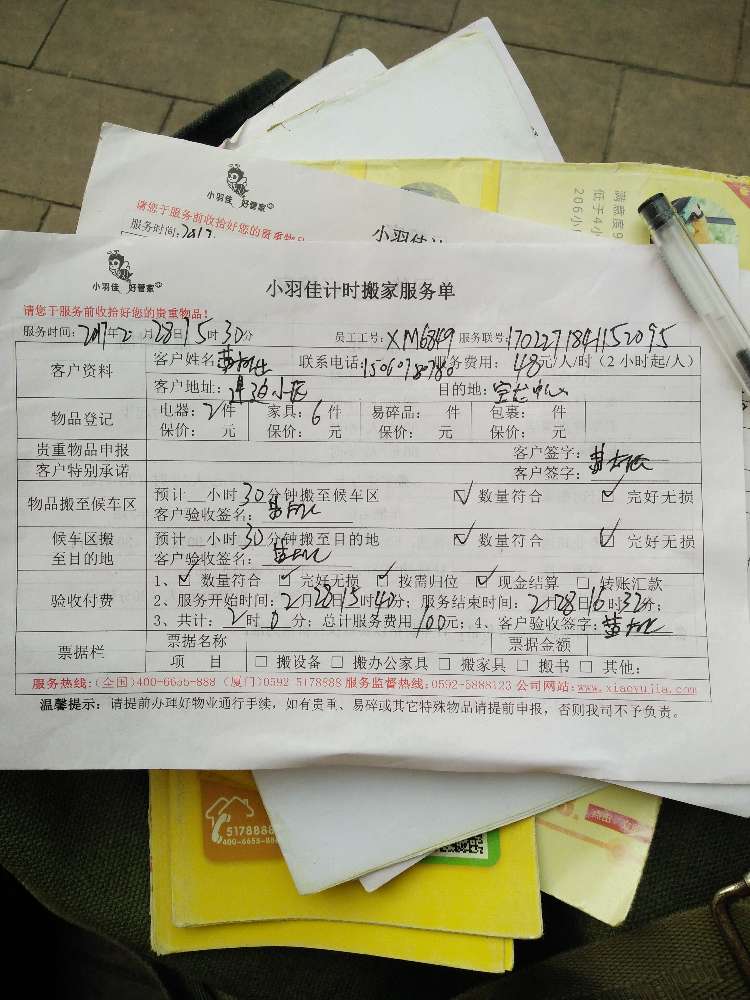 小羽佳 好管家
请您于服务前收拾好您的贵重物品
服务时间:2017
小羽佳计
满意度9
低于4小
206小
小羽佳 好管家
小羽佳计时搬家服务单
请您于服务前收拾好您的贵重物品!
服务时间: 2017年2月28日15时30分 员工工号: XM6849 服务联号: 1702271841152095
客户资料 客户姓名: 联系电话: 服务费用: 48元/人/时(2小时起/人)
客户地址: 小区 目的地: 中心
物品登记 电器: 2件 家具: 6件 易碎品: 件 包裹: 件
保价: 元 保价: 元 保价: 元 保价: 元
贵重物品申报 客户签字:
客户特别承诺 客户签字:
物品搬至候车区 预计__小时30分钟搬至候车区 ☑ 数量符合 ☑ 完好无损
客户验收签名:
候车区搬至目的地 预计__小时30分钟搬至目的地 ☑ 数量符合 ☑ 完好无损
客户验收签名:
验收付费 1、☑ 数量符合 ☑ 完好无损 ☑ 按需归位 ☑ 现金结算 □ 转账汇款
2、服务开始时间: 2月28日15时40分; 服务结束时间: 2月28日16时32分;
3、共计: 2时0分; 总计服务费用100元; 4、客户验收签字:
票据栏 票据名称 票据金额
项 目 □ 搬设备 □ 搬办公家具 □ 搬家具 □ 搬书 □ 其他:
服务热线:(全国)400-6655-888 (厦门)0592 5178888 服务监督热线:0592-5888123 公司网站:www.xiaoyujia.com
温馨提示: 请提前办理好物业通行手续,如有贵重、易碎或其它特殊物品请提前申报,否则我司不予负责。
5178888
400-6655-88